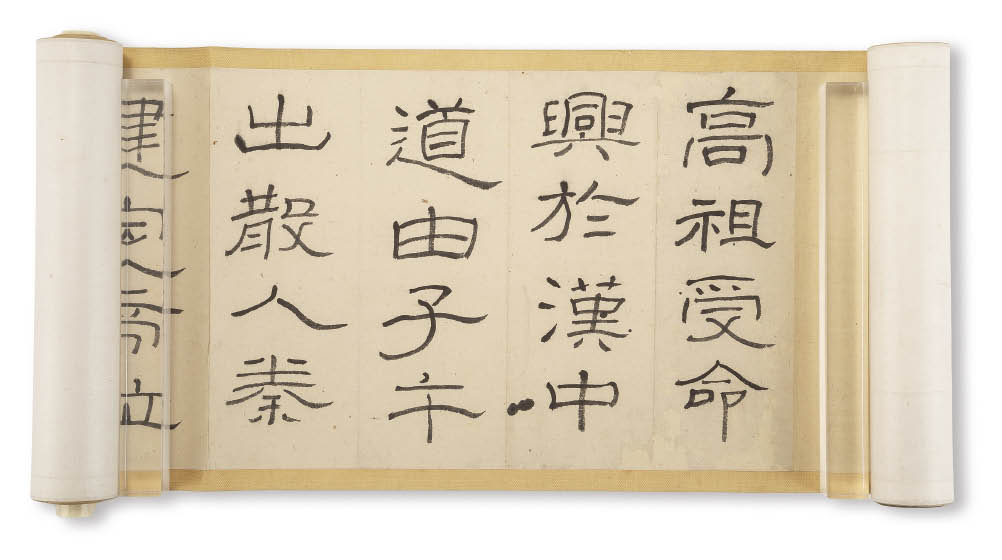 高祖受命
興於漢中
道由子午
出散入秦
建定帝位